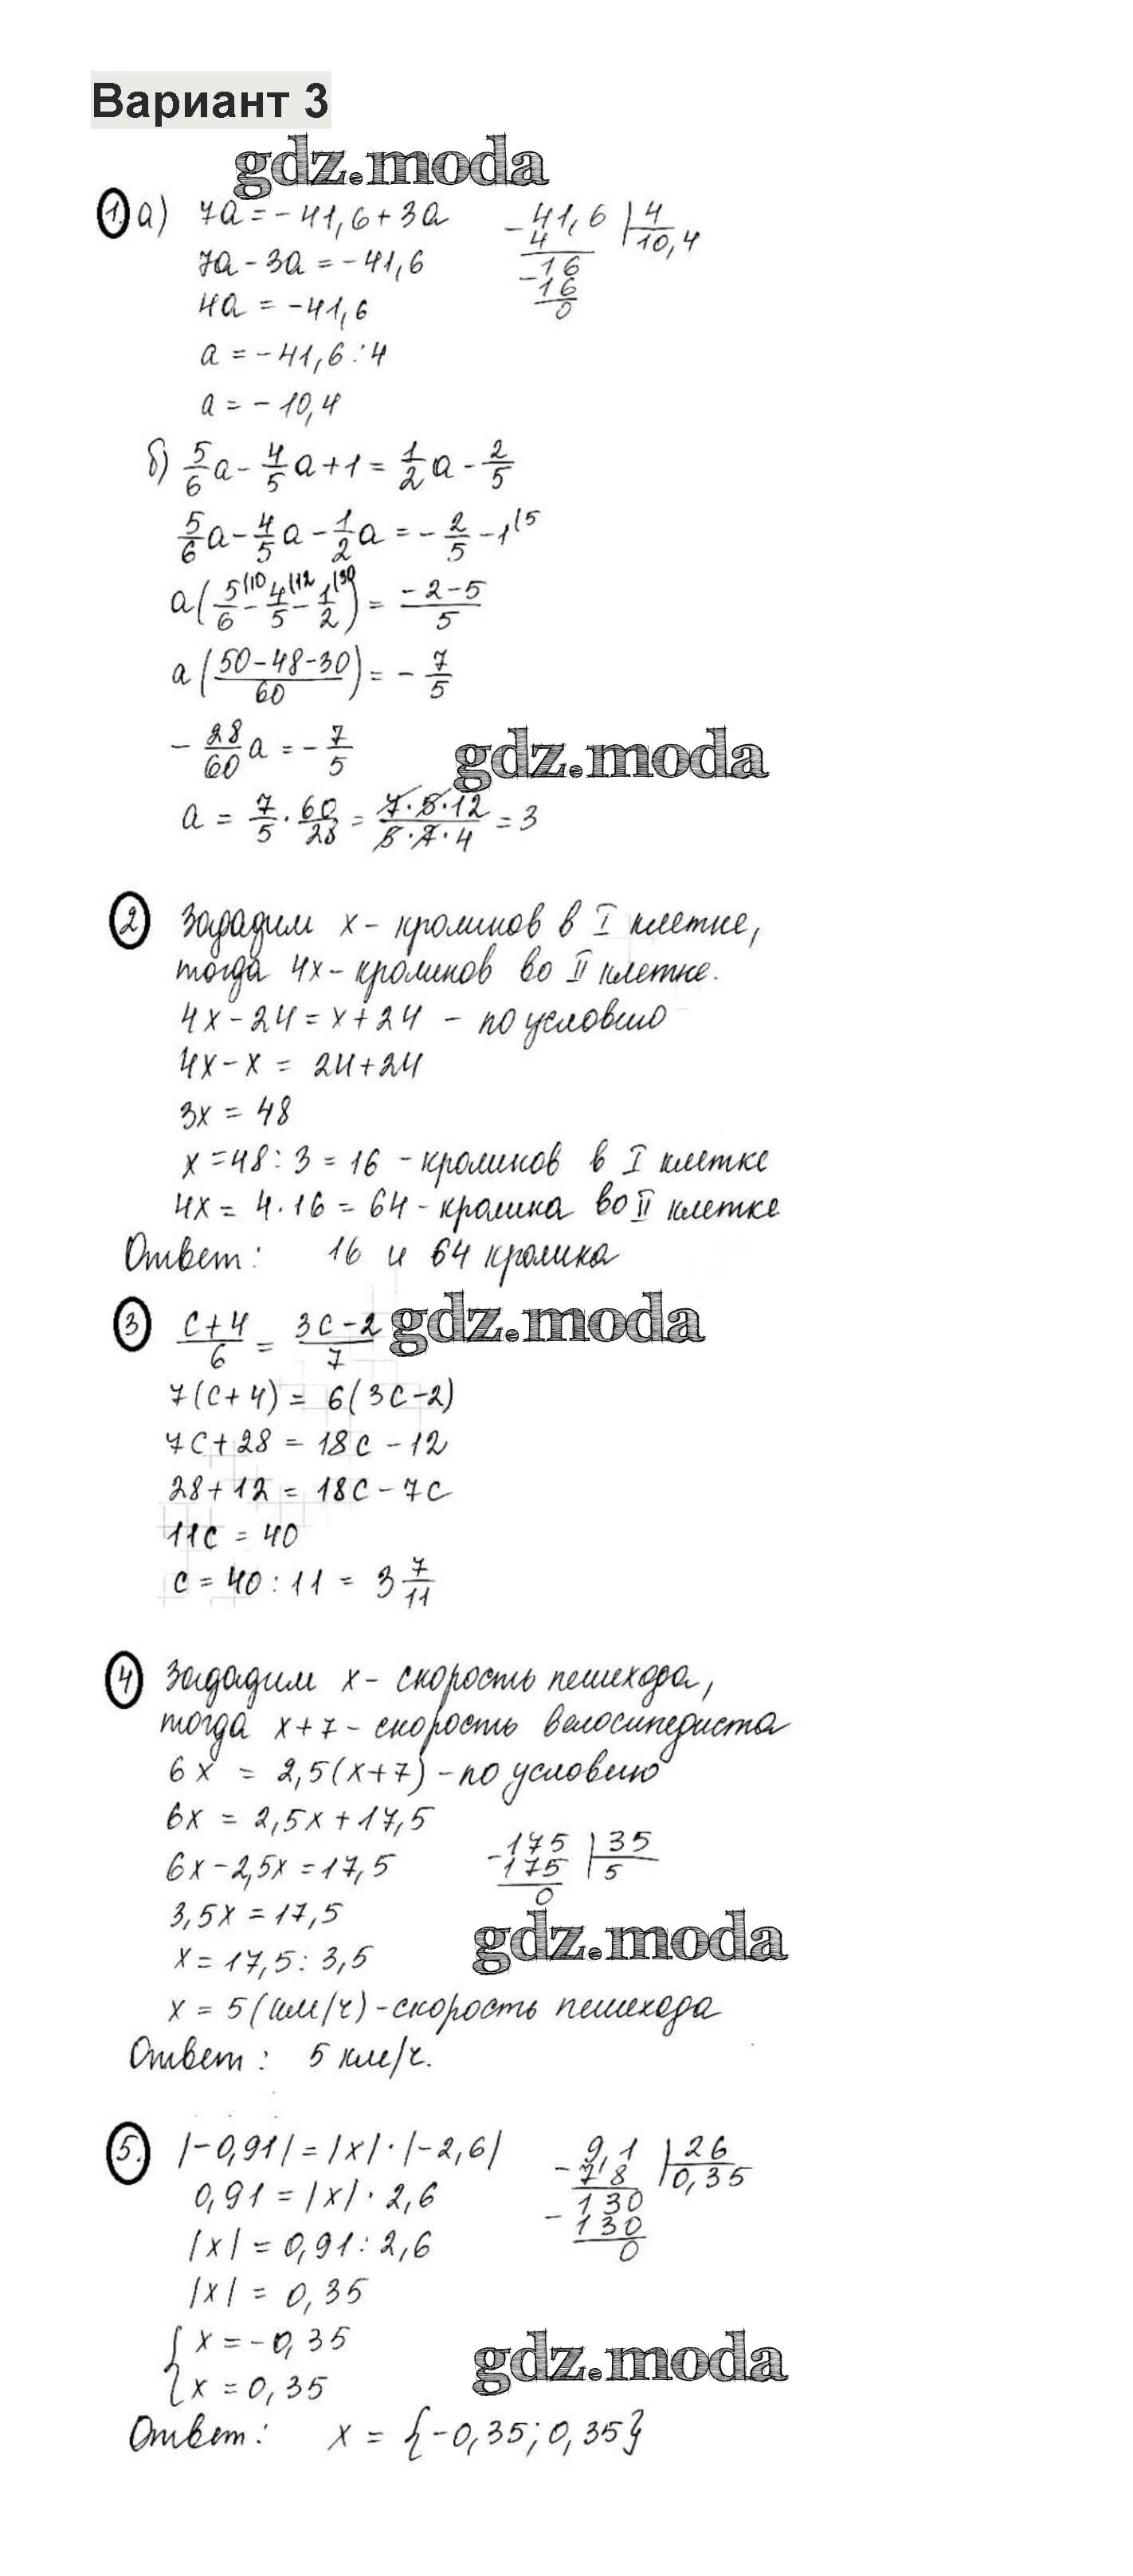 Вариант 3
gdz.moda
1. а) 7a = - 41,6 + 3a
7a - 3a = - 41,6
4a = - 41,6
a = - 41,6 : 4
a = - 10,4
- 41,6 | 4
4 10,4
- 16
16
0
б) 5/6 a - 4/5 a + 1 = 1/2 a - 2/5
5/6 a - 4/5 a - 1/2 a = - 2/5 - 1 (5
a (5(10/6 - 4(12/5 - 1(30/2) = (-2-5)/5
a ((50-48-30)/60) = - 7/5
- 28/60 a = - 7/5
gdz.moda
a = 7/5 · 60/28 = (7·5·12)/(5·7·4) = 3
2 Зададим x - кроликов в I клетке,
тогда 4x - кроликов во II клетке.
4x - 24 = x + 24 - по условию
4x - x = 24 + 24
3x = 48
x = 48 : 3 = 16 - кроликов в I клетке
4x = 4 · 16 = 64 - кролика во II клетке
Ответ: 16 и 64 кролика
3 (c+4)/6 = (3c-2)/7
gdz.moda
7(c+4) = 6(3c-2)
7c + 28 = 18c - 12
28 + 12 = 18c - 7c
11c = 40
c = 40 : 11 = 3 7/11
4 Зададим x - скорость пешехода,
тогда x + 7 - скорость велосипедиста
6x = 2,5(x+7) - по условию
6x = 2,5x + 17,5
6x - 2,5x = 17,5
3,5x = 17,5
x = 17,5 : 3,5
x = 5 (км/ч) - скорость пешехода
- 175 | 35
175 5
0
gdz.moda
Ответ: 5 км/ч.
5. |-0,91| = |x| · |-2,6|
0,91 = |x| · 2,6
|x| = 0,91 : 2,6
|x| = 0,35
{ x = -0,35
x = 0,35
- 9,1 | 26
7 8 0,35
- 130
130
0
gdz.moda
Ответ: x = {-0,35; 0,35}